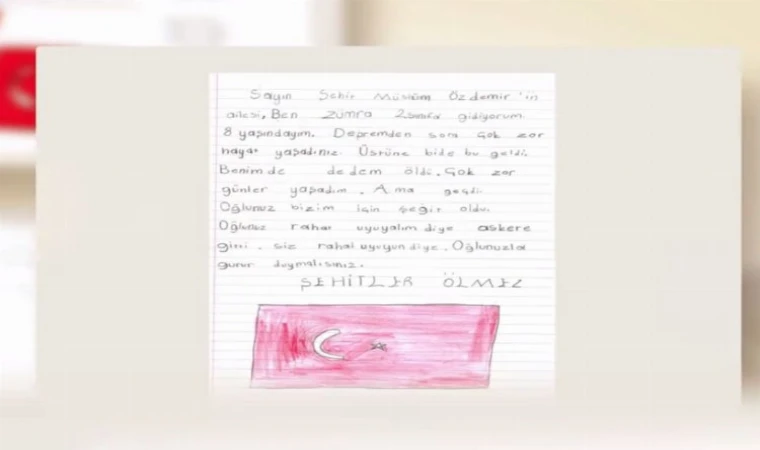 Sayın Şehit Müslüm Özdemir'in
ailesi, Ben Zümra 2.sınıfa gidiyorum.
8 yaşındayım. Depremden sora çok zor
hayat yaşadınız. Üstüne bide bu geldi.
Benimde dedem öldi. Çok zor
günler yaşadım. Ama geçdi.
Oğlunuz bizim için şeğit oldu.
Oğlunuz rahat uyuyalım diye askere
gitti. siz rahat uyuyun diye. Oğlunuzla
gurur duymalısınız.
ŞEHİTLER ÖLMEZ